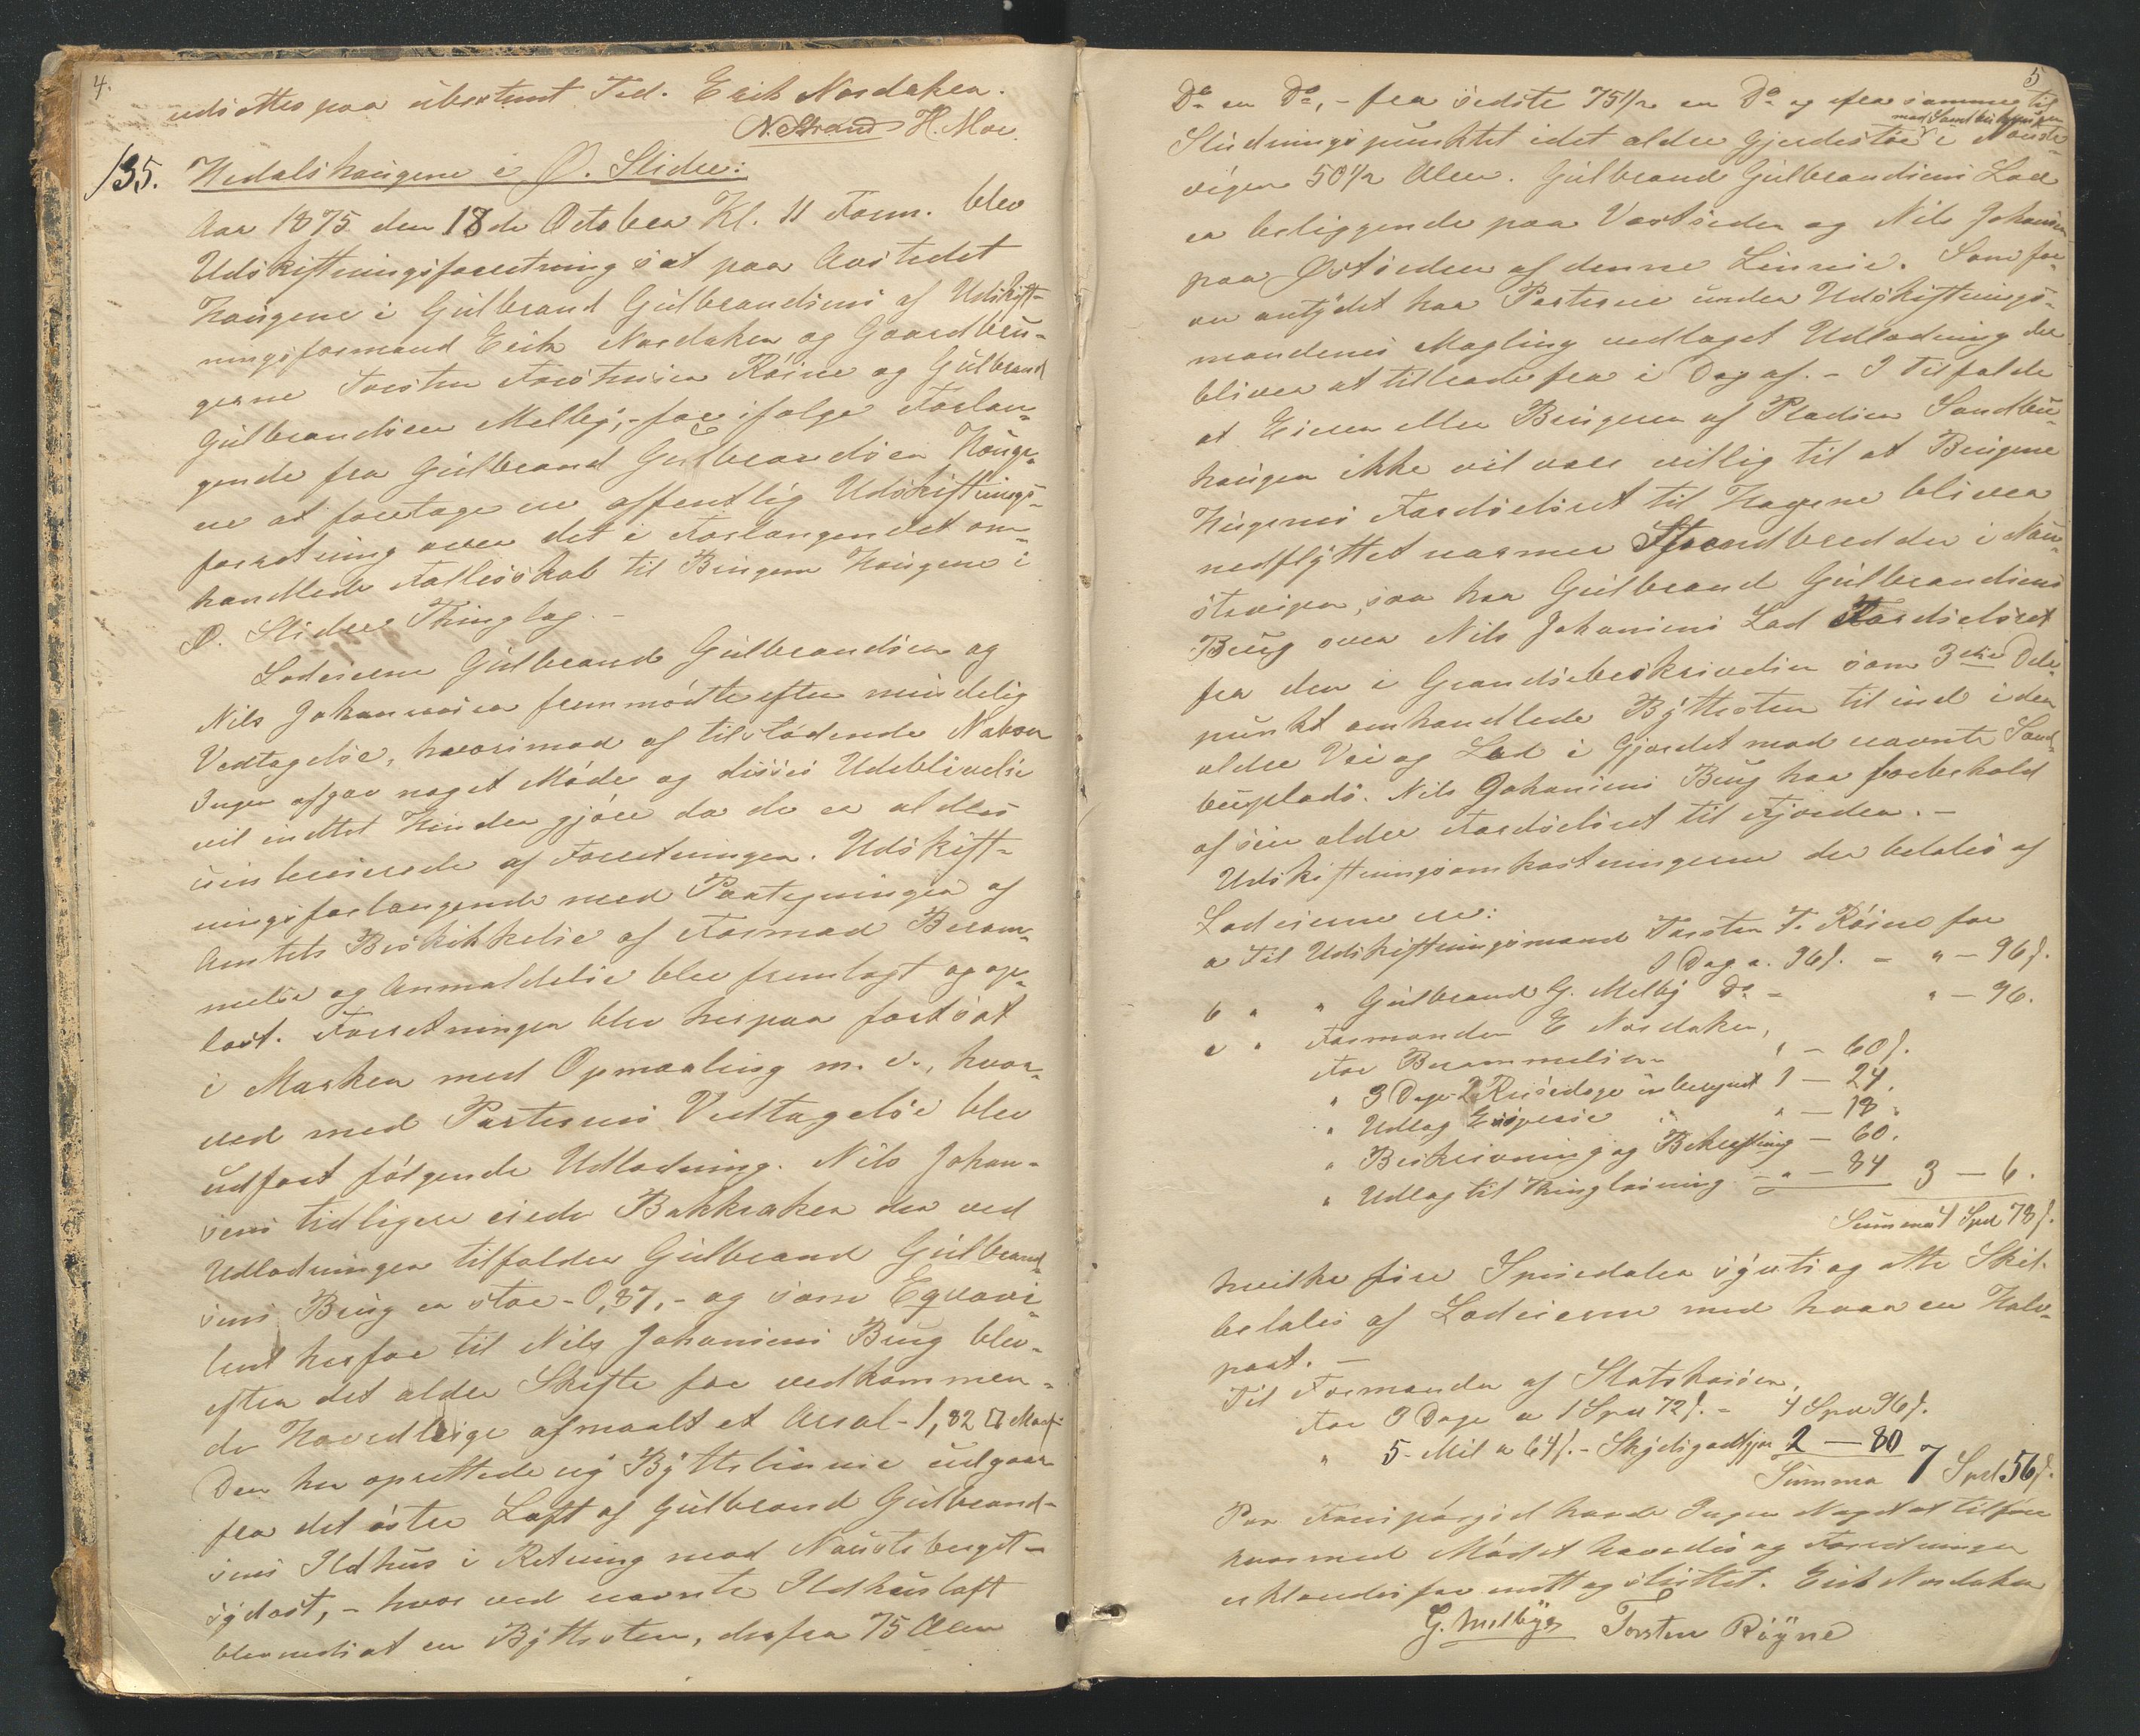 4.
udsættes paa ubestemt Tid. Erik Nordaker.
N. Strand H. Moe.
135. Hedalshaugene i Ø. Slidre:
Aar 1875 den 18de October Kl. 11 Form. blev
Udskiftningsforretning sat paa Aastedet
Haugene i Gulbrand Gulbrandsens af Udskift-
ningsformand Erik Nordaker og Gaardbru-
gerne Torsten Torstensen Röine og Gulbrand
Gulbrandsen Melby,- for ifølge Forlan-
gende fra Gulbrand Gulbrandsen Hauge-
ne at foretage en offentlig Udskiftnings-
forretning over det i Forlangendet om-
handlede Fællesskab til Brugene Haugene i
Ø. Slidre Thinglag. -
Lodeierne Gulbrand Gulbrandsen og
Nils Johannesen fremmødte efter mindelig
Vedtagelse, hvorimod af tilstødende Naboer
Ingen afgav noget Møde og disses Udeblivelse
vil intet Hinder gjøre da de er aldeles
uinteresserede af Forretningen. Udskift-
ningsforlangende med Paategninger af
Amtets Beskikkelse af Formand Beram-
melse og Anmældelse blev fremlagt og op-
læst. Forretningen blev herpaa fortsat
i Marken med Opmaaling m. v., hvor-
ved med Parternes Vedtagelse blev
udført følgende Udlodning. Nils Johan-
sens tidligere eiede Bakkeaker der ved
Udlodningen tilfalder Gulbrand Gulbrand-
sens Brug er stor - 0,87,- og som Eqvavi-
lent herfor til Nils Johansens Brug blev
efter det ældre Skifte for vedkommen-
de Havedleige afmaalt et Areal - 1,82 □ Maal.
Den her oprettede ny Byttelinnie udgaar
fra det østre Loft af Gulbrand Gulbrand-
sens Ildhus i Retning mod Naustberget -
sydost, - hvor ved nævnte Ildhusloft
blev nedsat en Byttesten, derfra 75 Alen
5
Do en Do, - fra sidste 75 1/2 en Do og efter samme til
Slutningspunktet i det ældre Gjerdestøe i Nauste-
vigen 50 1/2 Alen. Gulbrand Gulbrandsens Lod
er beliggende paa Vestsiden og Nils Johansen
paa Østsiden af denne Linnie. Som for-
an antydet har Parterne under Udskiftnings-
mandens Mægling vedtaget Udlodning der
bliver at tiltræde fra i Dag af. - I Tilfælde
at Eieren eller Brugeren af Pladsen Sandbu-
haugen ikke vil være villig til at Brugene
Haugenes Færdselsret til Haugene bliver
nedflyttet nærmere Strandbredden i Nau-
stevigen, saa har Gulbrand Gulbrandsens
Brug over Nils Johansens Lod Færdselsret
fra den i Grændsebeskrivelsen som 3die Dele-
punkt omhandlede Byttesten til ind i den
ældre Vei og Led i Gjærdet mod nævnte Sand-
buplads. Nils Johansens Brug har forbehold
af sin ældre Færdselsret til Fjorden. -
Udskiftningsomkostningerne der betales af
Lodeierne er:
a Til Udskiftningsmand Torsten T. Röine for
1 Dag a. 96 ſ. - " - 96 ſ.
b " " Gulbrand G. Melby Do - " - 96.
c " Formanden E Nordaker,
For Berammelsen " - 60 ſ.
" 3 Dage - 2 Reisedage iberegnet 1 - 24.
" Udlag Expresse " - 18.
" Beskrivning og Bekræftning - 60.
" Udlag til Thinglæsning - " - 84 3 - 6.
Summa 4 Spd 78 ſ.
hvilke fire Speciedaler syvti og otte Skil.
betales af Lodeierne med hver en Halv-
part. -
Til Formanden af Statskassen.
For 3 Dage a 1 Spd 72 ſ. - 4 Spd 96 ſ.
" 5 Mil a 64 ſ. - Skydsgodtgj. 2 - 80
Summa 7 Spd 56 ſ.
Paa Forespørgsel havde Ingen Noget at tilføre
hvormed Mødet hævedes og Forretningen
erklæredes for endt og sluttet. Erik Nordaker
G. Melbye Torsten Röyne